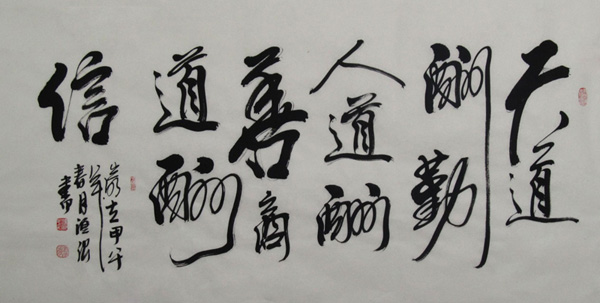 天道
酬勤
人道酬
善商
道酬
信
歲在甲午
年
春月
書